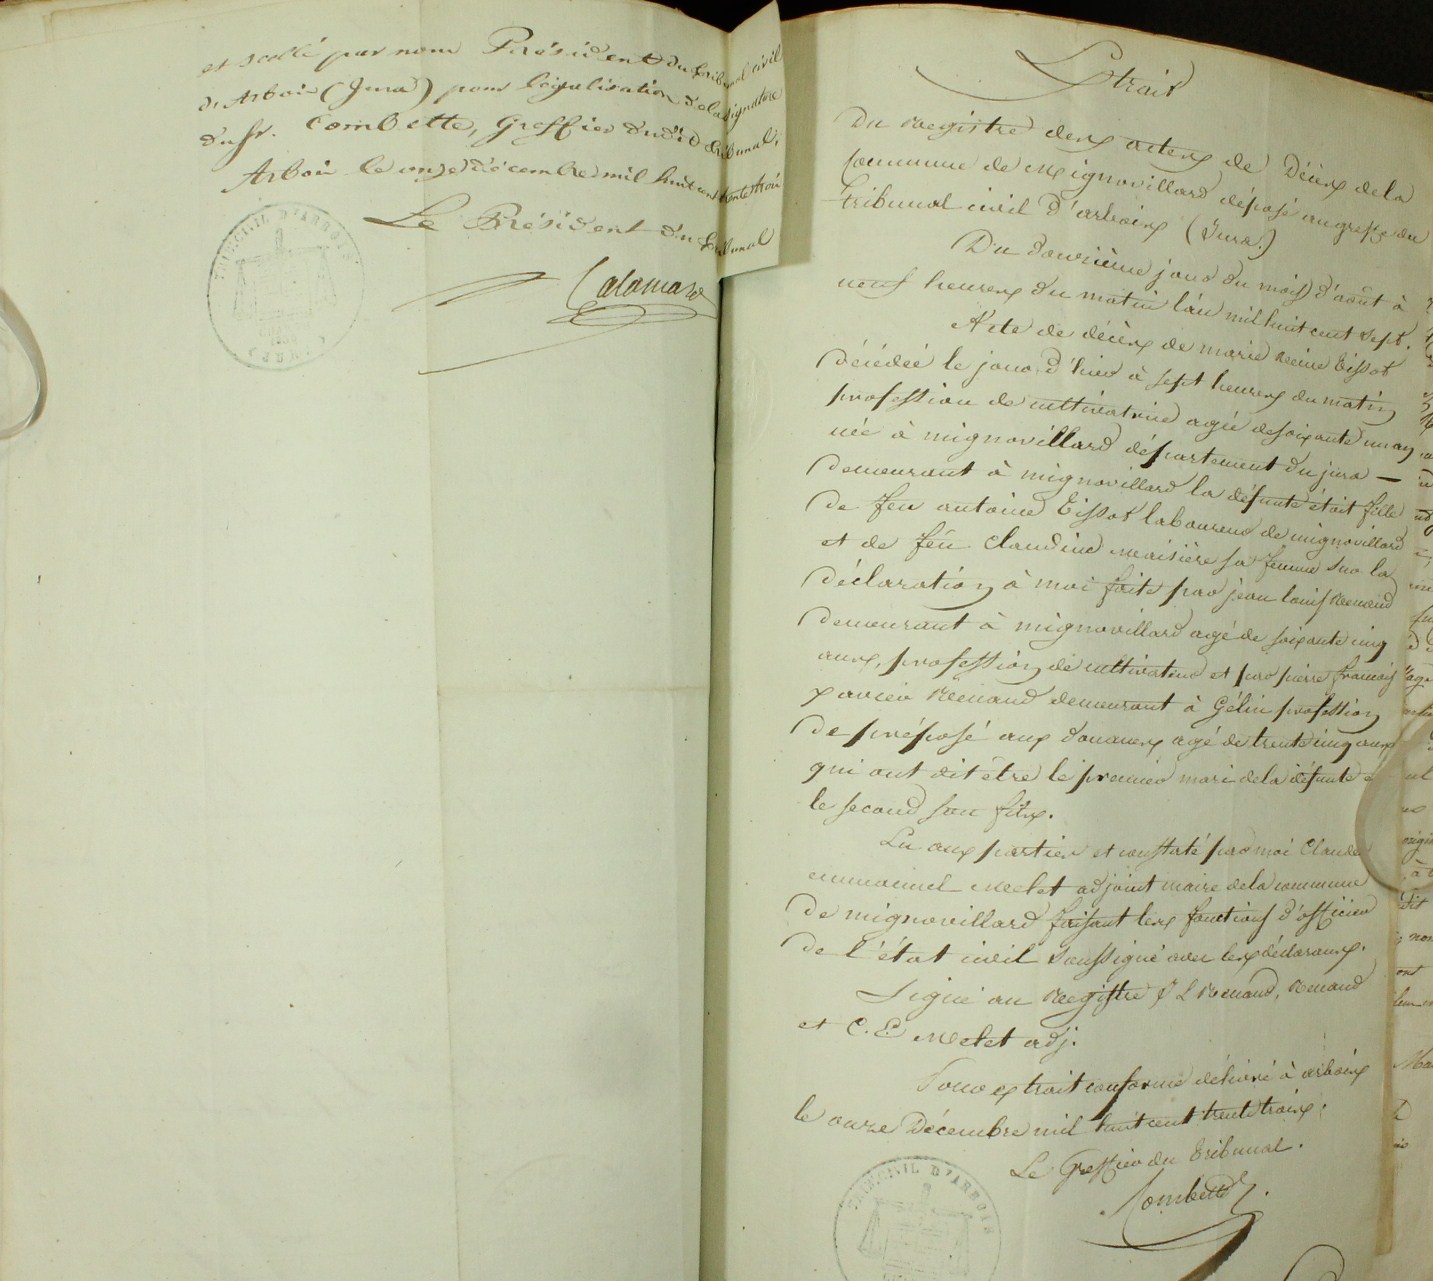 et scellé par nous Président du tribunal civil
d'Arbois (Jura) pour légalisation de la signature
du Sr. Combette, Greffier dudit tribunal,
Arbois le onze décembre mil huit cent trente trois
Le Président du tribunal
TRIBUNAL CIVIL D'ARBOIS
(JURA)
Extrait
Du Registre des actes de Décès de la
commune de Mignovillard déposé au greffe du
tribunal civil d'arbois (Jura.)
Du douzième jour du mois d'août à
neuf heures du matin l'an mil huit cent sept.
Acte de décès de marie Reine Tissot
décédée le jour d'hier à sept heures du matin
profession de cultivatrice agée de soixante un an
née à mignovillard département du jura —
demeurant à mignovillard la défunte étoit fille
de feu antoine Tissot laboureur de mignovillard
et de feu Claudine Maisière sa femme sur la
déclaration à moi faite par jean louis Renaud
demeurant à mignovillard agé de soixante cinq
ans, profession de cultivateur et par pierre françois
xavier Renaud demeurant à Gélin profession
de préposé aux douanes agé de trente cinq ans
qui ont dit être le premier mari de la défunte e
le second son fils.
Lu aux parties et constaté par moi Claude
emmanuel Melet adjoint maire de la commune
de mignovillard faisant les fonctions d'officier
de l'état civil soussigné avec les déclarans.
Signé au Registre J L Renaud, Renaud
et C. E. Melet adj.
Pour extrait conforme délivré à arbois
le onze Décembre mil huit cent trente trois.
Le Greffier du tribunal.
Combette
TRIBUNAL CIVIL D'ARBOIS